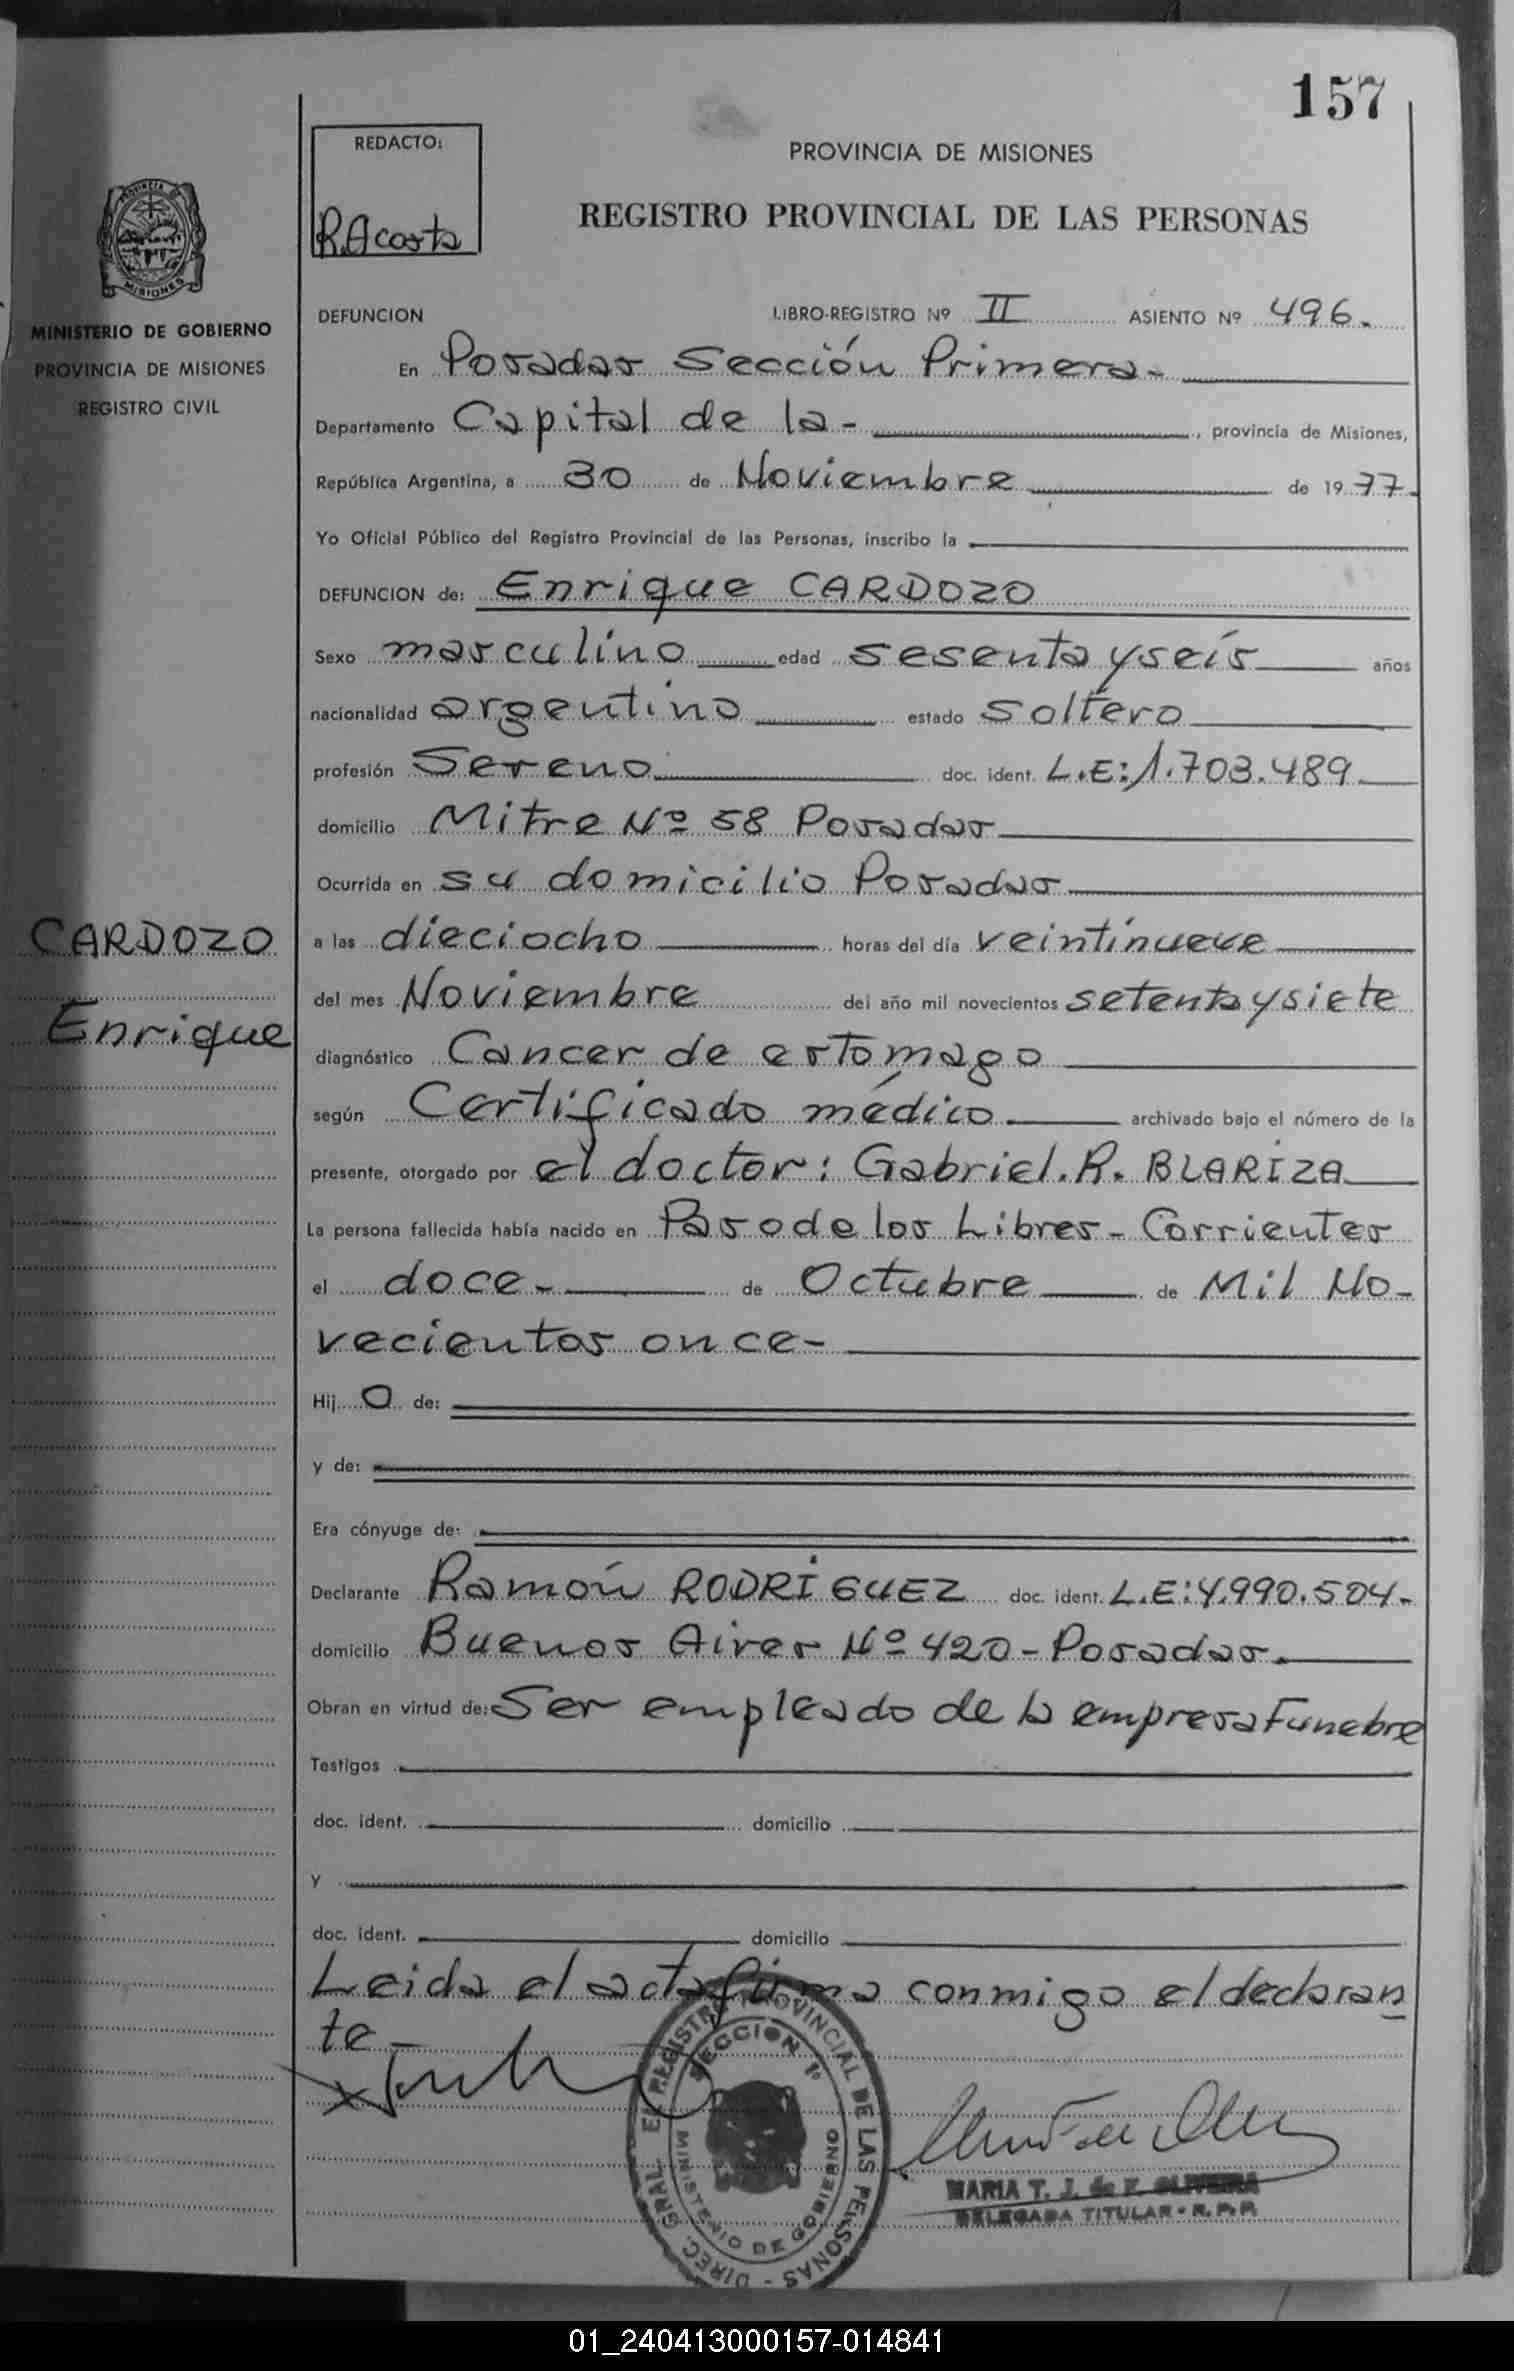 157
REDACTO:
R. Acosta
PROVINCIA DE MISIONES
REGISTRO PROVINCIAL DE LAS PERSONAS
PROVINCIA DE
MISIONES
MINISTERIO DE GOBIERNO
PROVINCIA DE MISIONES
REGISTRO CIVIL
DEFUNCION LIBRO-REGISTRO Nº II ASIENTO Nº 496.
En Posadas Sección Primera-
Departamento Capital de la- , provincia de Misiones,
República Argentina, a 30 de Noviembre de 1977.
Yo Oficial Público del Registro Provincial de las Personas, inscribo la
DEFUNCION de: Enrique CARDOZO
Sexo masculino edad sesenta y seis años
nacionalidad argentino estado Soltero
profesión Sereno doc. ident. L.E: 1.703.489.
domicilio Mitre Nº 58 Posadas
Ocurrida en su domicilio Posadas
CARDOZO
Enrique
a las dieciocho horas del día veintinueve
del mes Noviembre del año mil novecientos setenta y siete
diagnóstico Cancer de estomago
según Certificado médico archivado bajo el número de la
presente, otorgado por el doctor: Gabriel. R. BLARIZA
La persona fallecida había nacido en Paso de los Libres - Corrientes
el doce- de Octubre de Mil No-
vecientos once-
Hij o de:
y de:
Era cónyuge de:
Declarante Ramón RODRIGUEZ doc. ident. L.E: 4.990.504-
domicilio Buenos Aires Nº 420 - Posadas.
Obran en virtud de: Ser empleado de la empresa Funebre
Testigos
doc. ident. domicilio
y
doc. ident. domicilio
Leida el acta firma conmigo el declaran
te-
DIREC. GRAL. EL REGISTRO PROVINCIAL DE LAS PERSONAS -
SECCION 1º
MINISTERIO DE GOBIERNO
MARIA T. J. de F. OLIVEIRA
DELEGADA TITULAR - R. P. P.
01_240413000157-014841